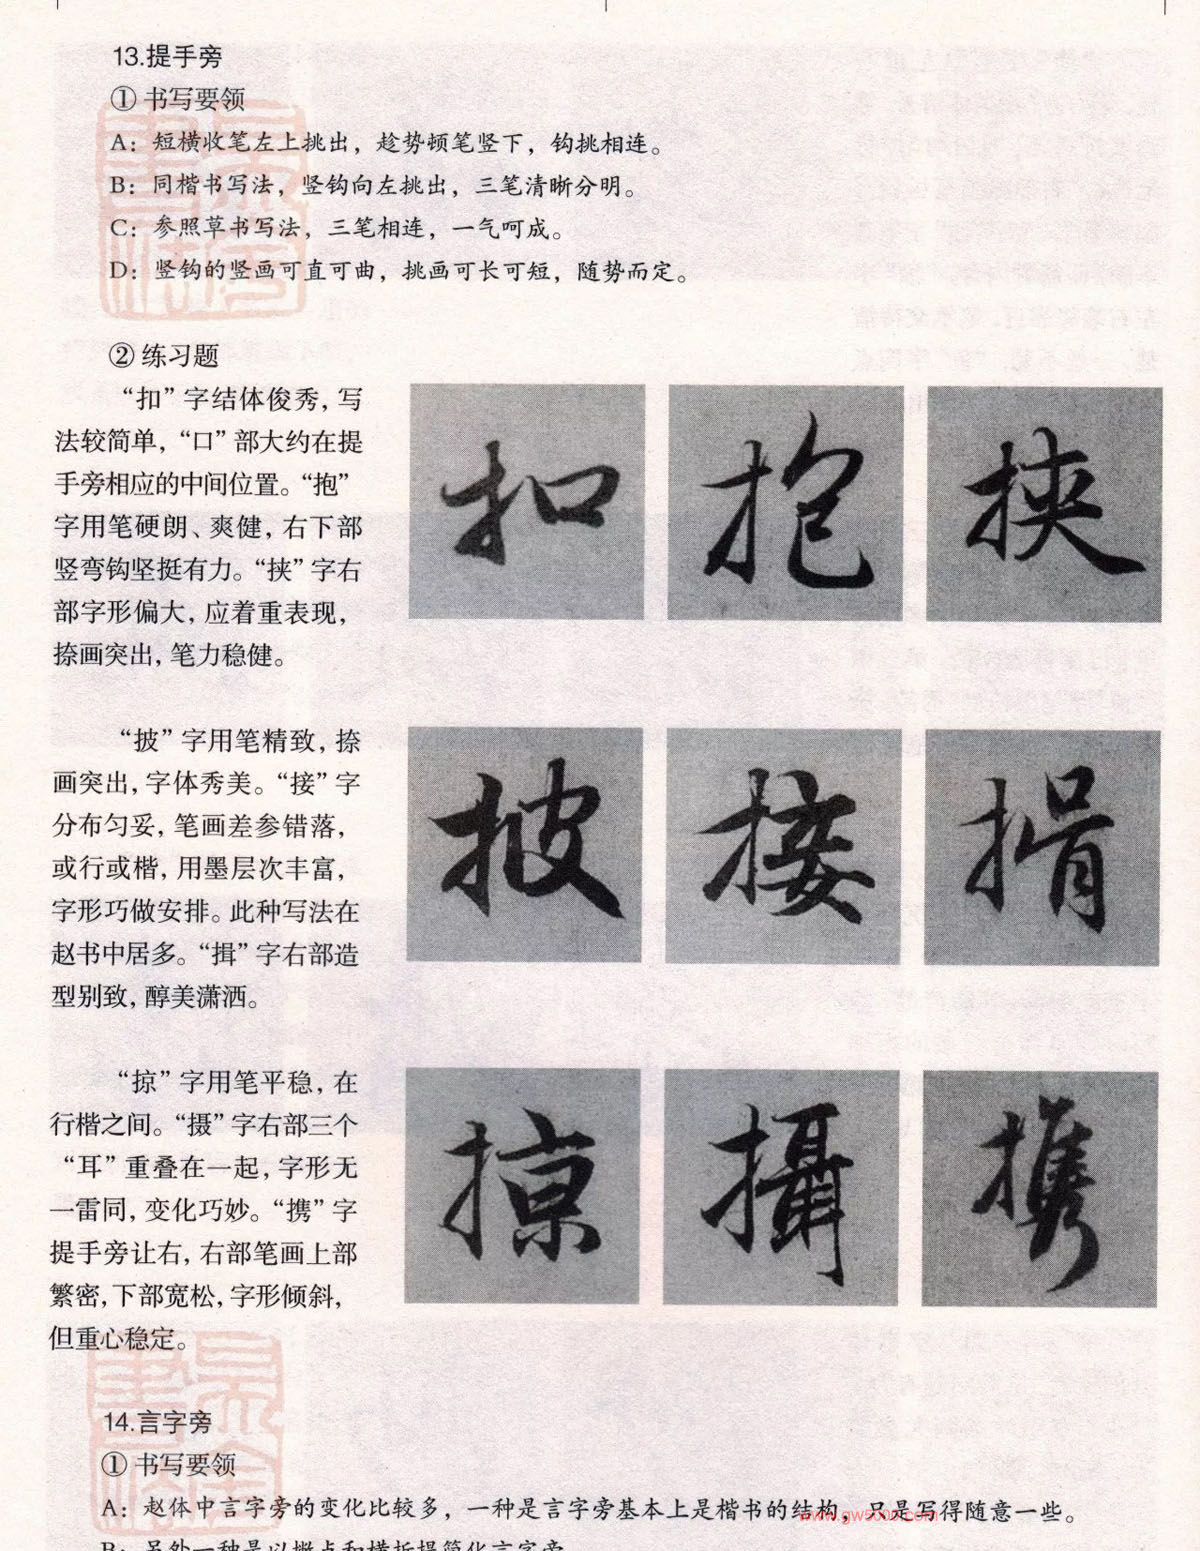 13.提手旁
① 书写要领
A：短横收笔左上挑出，趁势顿笔竖下，钩挑相连。
B：同楷书写法，竖钩向左挑出，三笔清晰分明。
C：参照草书写法，三笔相连，一气呵成。
D：竖钩的竖画可直可曲，挑画可长可短，随势而定。
② 练习题
“扣”字结体俊秀，写
法较简单，“口”部大约在提
手旁相应的中间位置。“抱”
字用笔硬朗、爽健，右下部
竖弯钩坚挺有力。“挟”字右
部字形偏大，应着重表现，
捺画突出，笔力稳健。
扣 抱 挾
“披”字用笔精致，捺
画突出，字体秀美。“接”字
分布匀妥，笔画差参错落，
或行或楷，用墨层次丰富，
字形巧做安排。此种写法在
赵书中居多。“揖”字右部造
型别致，醇美潇洒。
披 接 揖
“掠”字用笔平稳，在
行楷之间。“摄”字右部三个
“耳”重叠在一起，字形无
一雷同，变化巧妙。“携”字
提手旁让右，右部笔画上部
繁密，下部宽松，字形倾斜，
但重心稳定。
掠 攝 携
14.言字旁
① 书写要领
A：赵体中言字旁的变化比较多，一种是言字旁基本上是楷书的结构，只是写得随意一些。
B：另外一种是以撇点和横折提简化言字旁